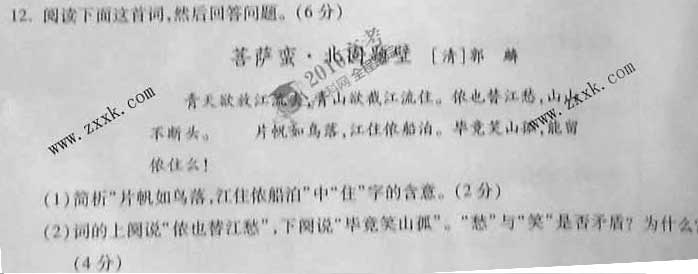 12. 阅读下面这首词,然后回答问题。(6分)
菩萨蛮·北固题壁 [清]郭 麟
青天欲放江流去,青山欲截江流住。侬也替江愁,山山
不断头。 片帆如鸟落,江住侬船泊。毕竟笑山孤,能留
侬住么!
(1)简析“片帆如鸟落,江住侬船泊”中“住”字的含意。(2分)
(2)词的上阕说“侬也替江愁”,下阕说“毕竟笑山孤”。“愁”与“笑”是否矛盾?为什么?
(4分)
www.zxxk.com
www.zxxk.com